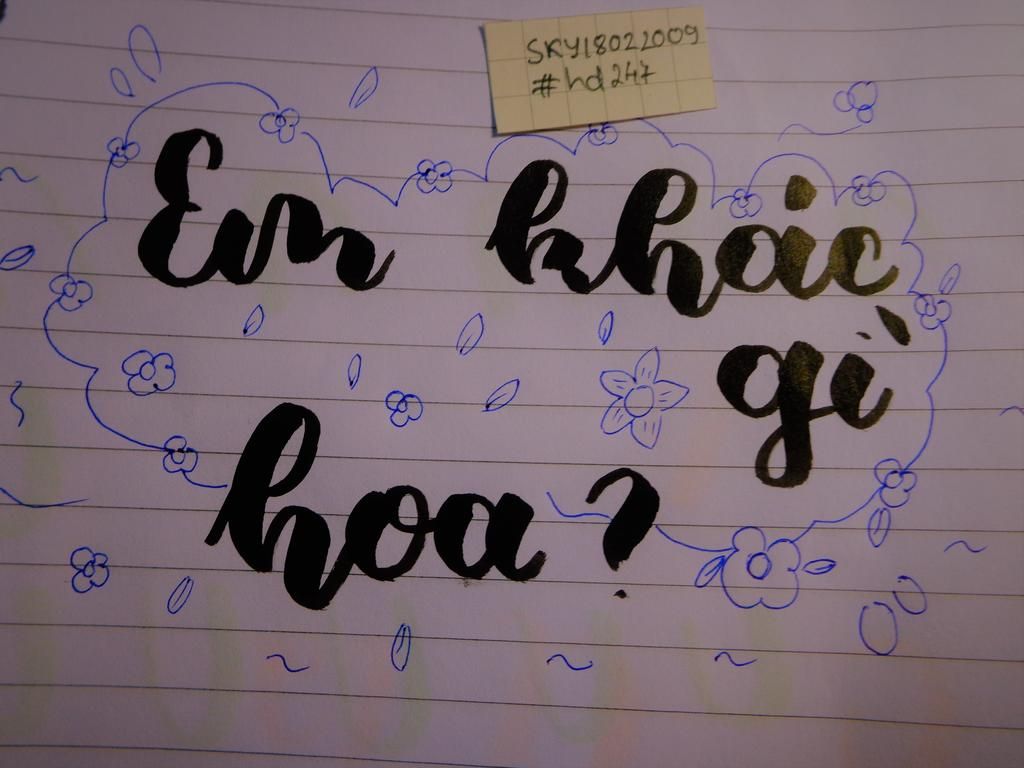 SKY18022009
#hd247
Em khác
gì
hoa?